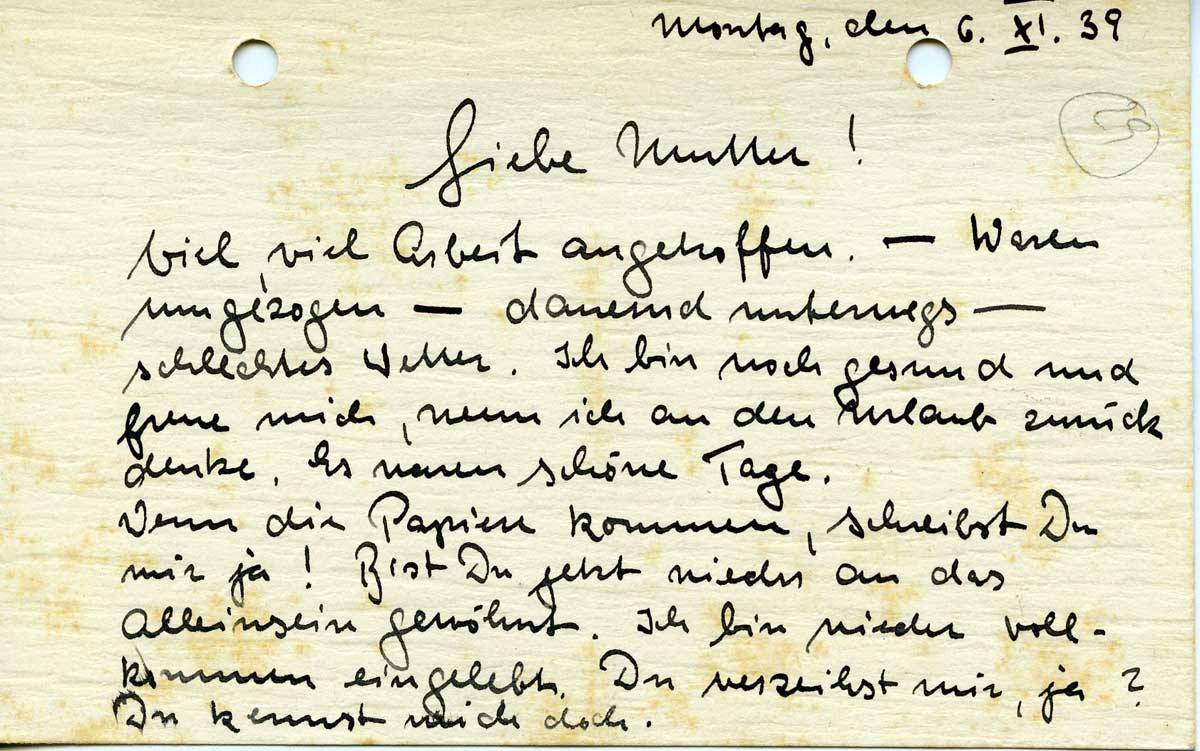 Montag, den 6. XI. 39
Liebe Mutter!
viel, viel Arbeit angetroffen. — Waren
umgezogen — dauernd unterwegs —
schlechtes Wetter. Ich bin noch gesund und
freue mich, wenn ich an den Urlaub zurück
denke. Es waren schöne Tage.
Wenn die Papiere kommen, schreibst Du
mir ja! Bist Du jetzt wieder an das
Alleinsein gewöhnt. Ich bin wieder voll-
kommen eingelebt. Du verzeihst mir, ja?
Du kennst mich doch.